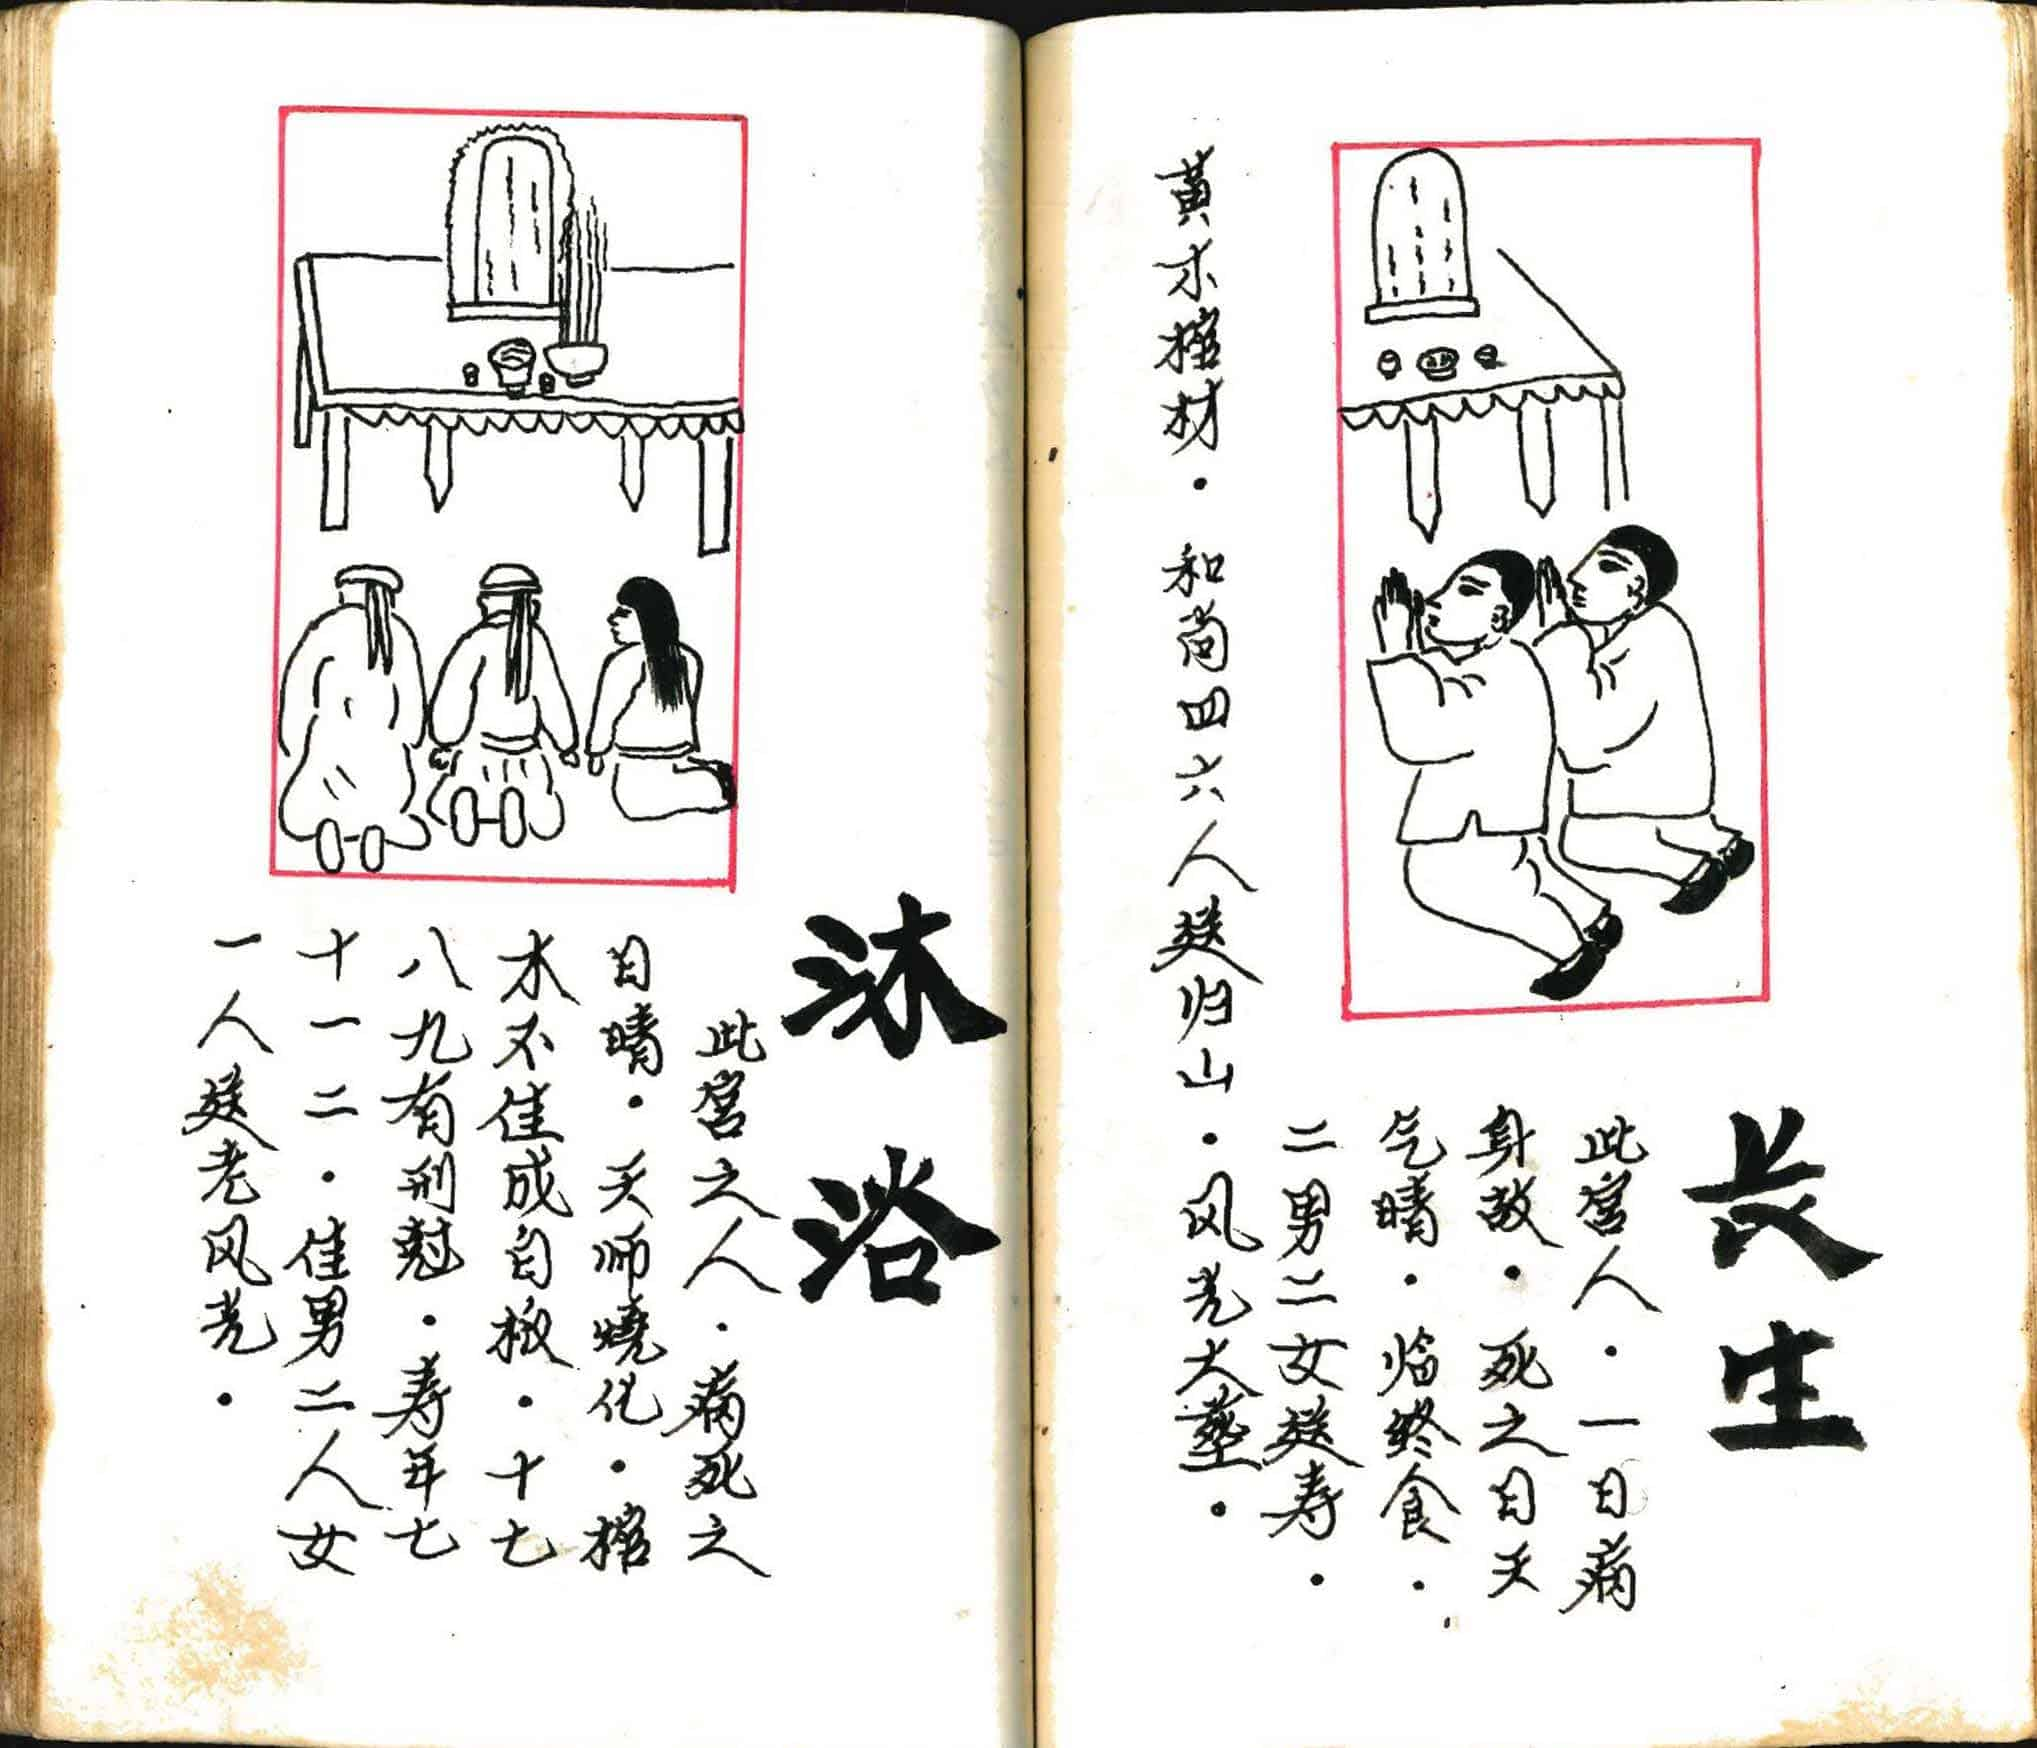 长生
此宫人·一日病
身故·死之日天
气晴·临终食·
二男二女送寿·
黄木棺材·和尚四六人送归山·风光大葬·
沐浴
此宫之人·病死之
日晴·天师烧化·棺
木不佳成白板·十七
八九有刑·寿年七
十一二·佳男二人女
一人送老风光·